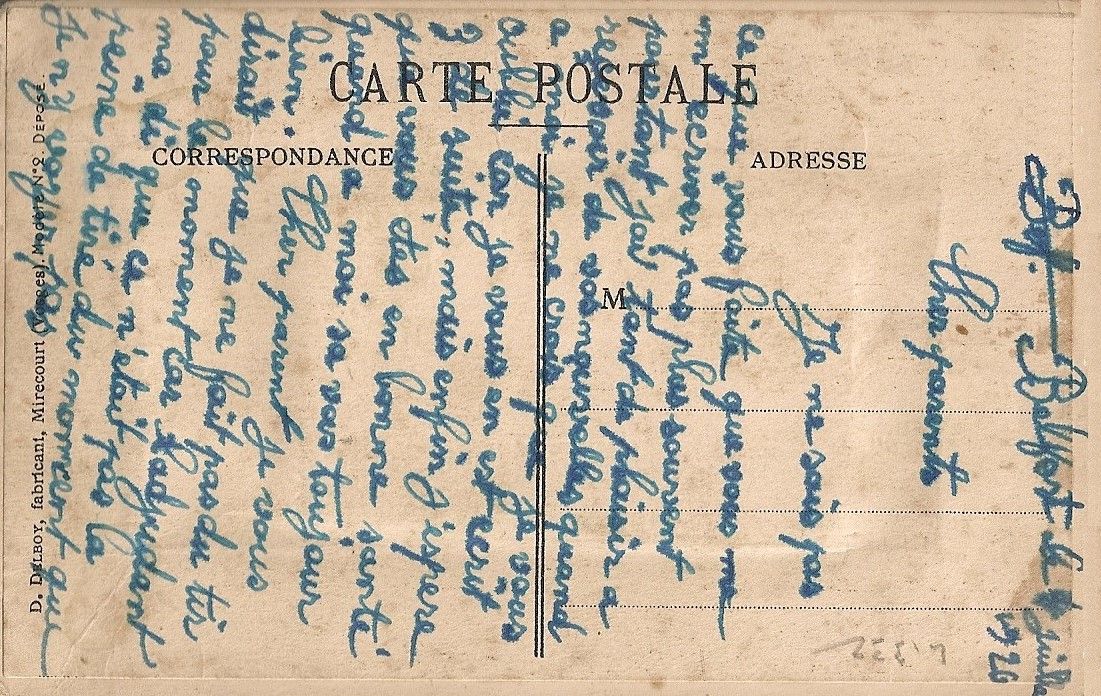 CARTE POSTALE
CORRESPONDANCE
ADRESSE
M
D. DELBOY, fabricant, Mirecourt (Vosges). Modèle N° 2. DÉPOSÉ
Belfort le juillet
1926
Cher parents
Je ne sais pas
ce que vous faite que vous me
m'ecriver pas plus souvent
pourtant j'ai tant de plaisir a
resevoir de vos nouvelles quand
a moi je ne crois pas je vous
car je vous en est ecrit
3 de suite, mais enfin j'espere
que vous etes en bonne santé
quend a moi sa vous toujour
bien.
Cher parent je vous
dirait que je me fait pas du tir
pour le moment car l'adjudent
ma di que ce n'etait pas la
peine de tiré du moment que
J'en y pas